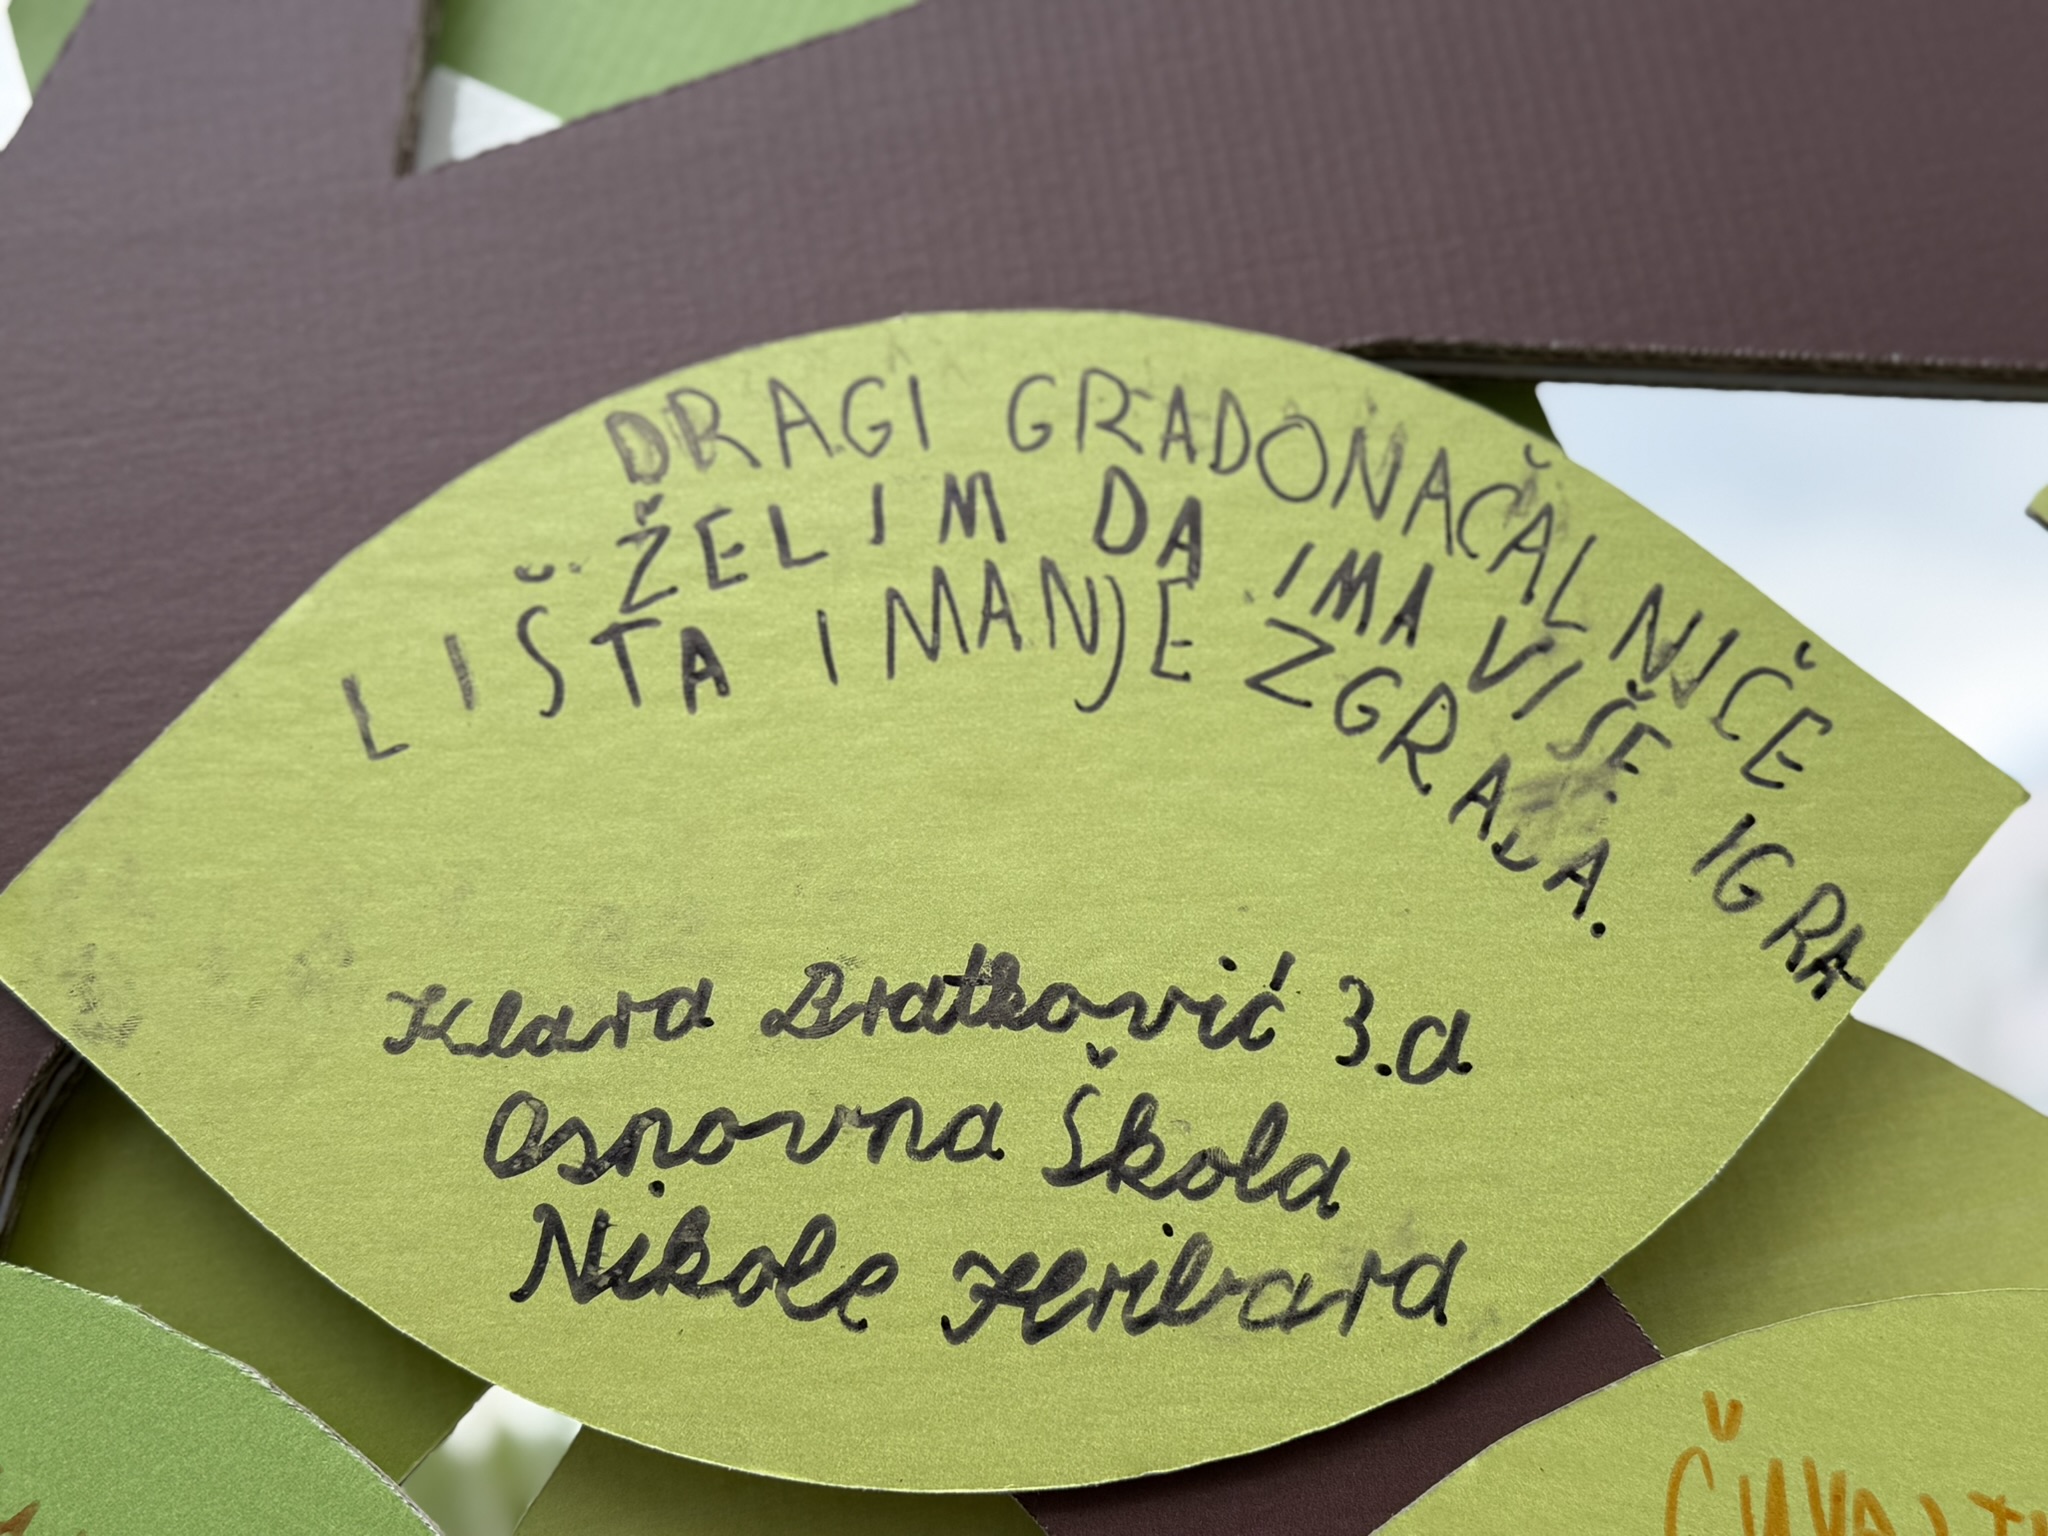 DRAGI GRADONAČALNIČE
ŽELIM DA IMA VIŠE IGRA
LIŠTA I MANJE ZGRADA.
Klara Bratković 3.a
Osnovna Škola
Nikole Hribara